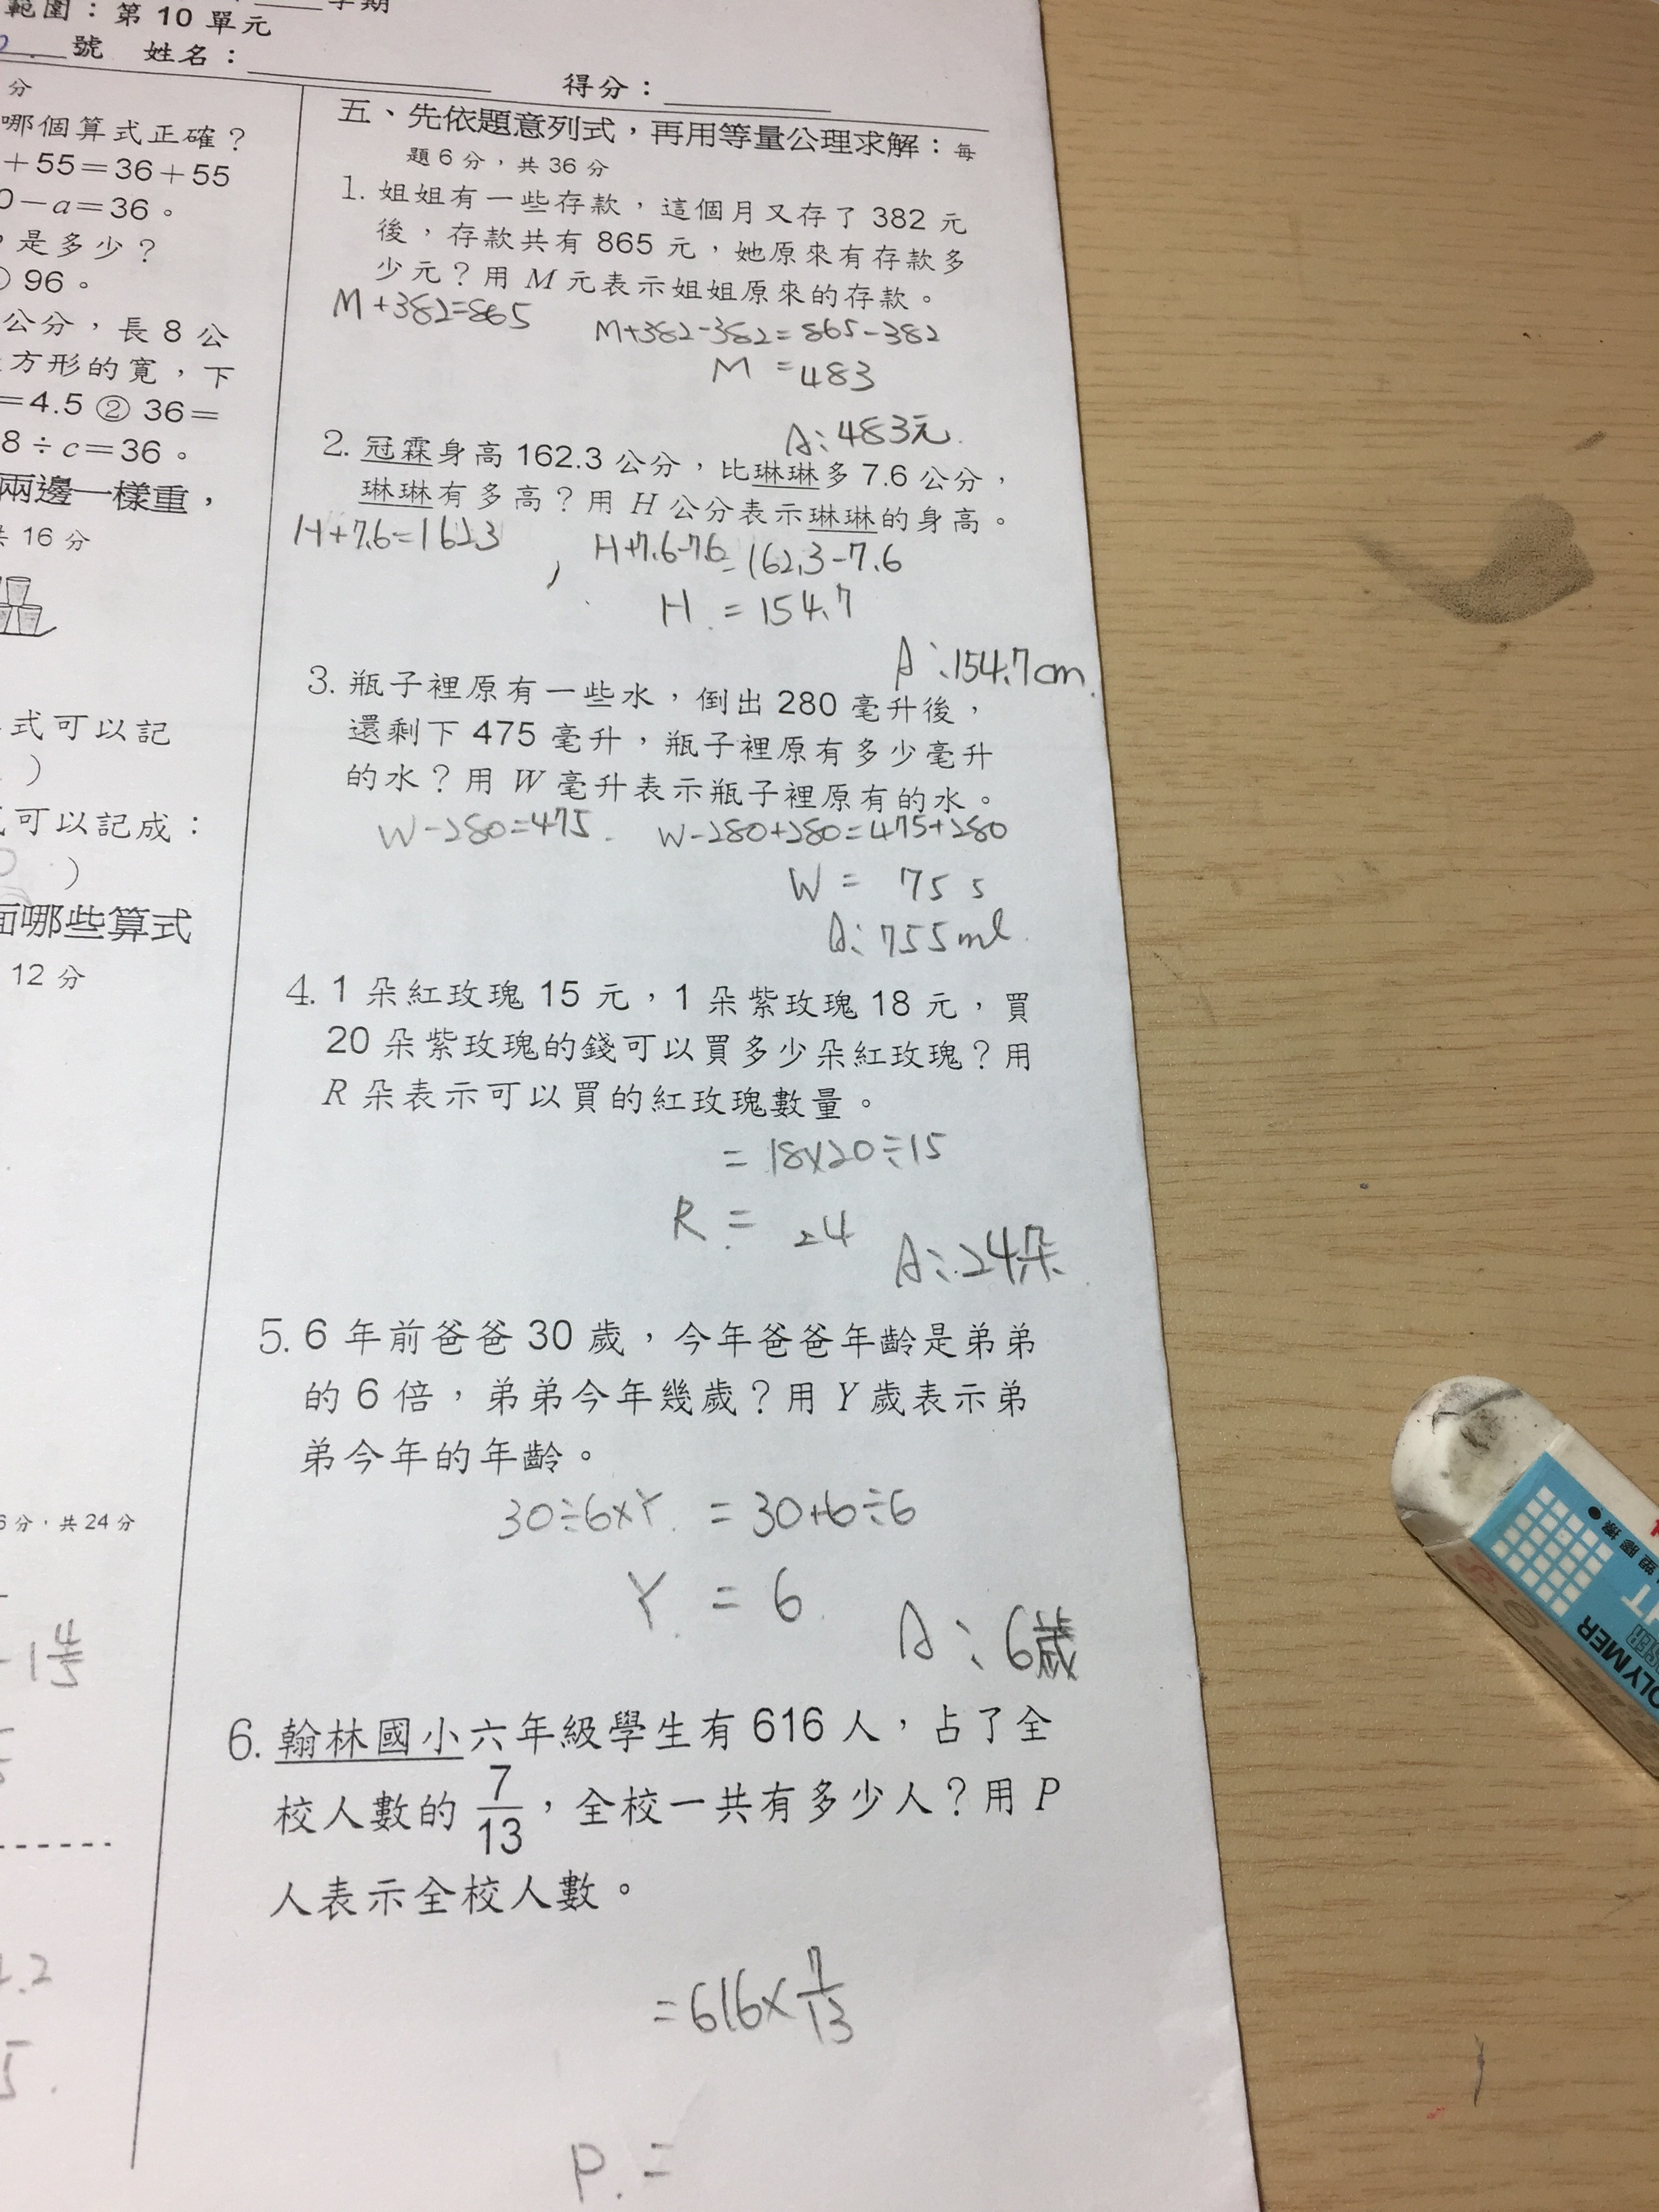 範圍：第 10 單元
號 姓名：
得分：
分
哪個算式正確？
+55=36+55
0-a=36。
是多少？
96。
公分，長 8 公
方形的寬，下
=4.5 ② 36=
8÷c=36。
兩邊一樣重，
共 16 分
式可以記
)
可以記成：
)
面哪些算式
12 分
6分，共 24 分
1 4/5
.2
5.
五、先依題意列式，再用等量公理求解：每
題 6 分，共 36 分
1. 姐姐有一些存款，這個月又存了 382 元
後，存款共有 865 元，她原來有存款多
少元？用 M 元表示姐姐原來的存款。
M+382=865
M+382-382=865-382
M =483
A:483元.
2. 冠霖身高 162.3 公分，比琳琳多 7.6 公分，
琳琳有多高？用 H 公分表示琳琳的身高。
H+7.6=162.3
H+7.6-7.6=162.3-7.6
H =154.7
A:154.7cm.
3. 瓶子裡原有一些水，倒出 280 毫升後，
還剩下 475 毫升，瓶子裡原有多少毫升
的水？用 W 毫升表示瓶子裡原有的水。
W-280=475.
W-280+280=475+280
W = 755
A:755ml.
4. 1 朵紅玫瑰 15 元，1 朵紫玫瑰 18 元，買
20 朵紫玫瑰的錢可以買多少朵紅玫瑰？用
R 朵表示可以買的紅玫瑰數量。
=18×20÷15
R = 24
A:24朵.
5. 6 年前爸爸 30 歲，今年爸爸年齡是弟弟
的 6 倍，弟弟今年幾歲？用 Y 歲表示弟
弟今年的年齡。
30÷6×Y =30+6÷6
Y =6
A:6歲
6. 翰林國小六年級學生有 616 人，占了全
校人數的 7/13，全校一共有多少人？用 P
人表示全校人數。
=616×7/13
P =
POLYMER